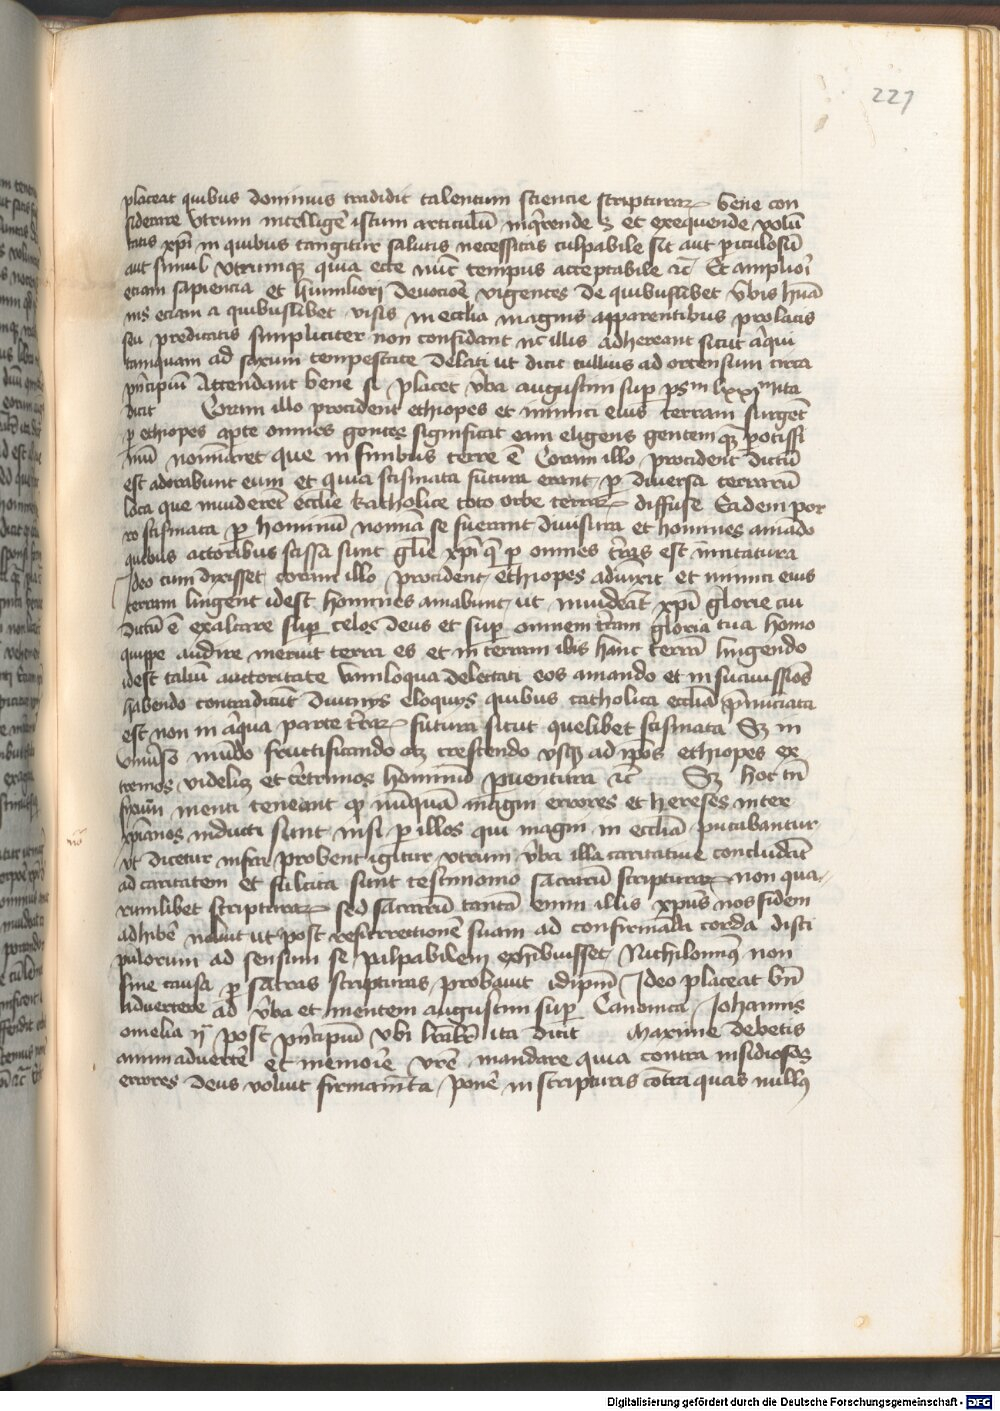 221
placeat quibus dominus tradidit talentum sciencie scripturaꝝ bene con
siderare Utrum intellige͂ istum articulū inq̄rende ꝫ et exequende volū
tatis xp̄i in quibus tangitur salutis necessitas culpabile sit aut p̄iculosū
aut simul Utrumqꝫ quia ecce nūc tempus acceptabile ꝛc̄ Et amplior̄
etiam sapiencia et humiliori devocioē vigentes de quibuslibet v̄bis hūa
nis eciam a quibuslibet visis in ecclīa magnis apparentibus prolatis
seu predicatis simpliciter non confidant nc̄ illis adhereant sicut aq̄ui
tamquam ad saxum tempestate delati ut dicit tullius ad ortensum circa
p̄ncipiū Attendant bene si placet v̄ba augustini sup̄ psᵐ lxxiᵐ ita
dicit Coram illo procident ethiopes et inimici eius terram lingēt
p̄ ethiopes ap̄te omnes gentes significat eam eligens gentem qꝫ potissi
mū nominaret que in finibus terre ē Coram illo procident dictū
est adorabunt eum et quia scismata futura erant p̄ diversa terrarū
loca que inviderēt ecclīe katholice toto orbe terraꝝ diffuse Eadem por
ro scismata p̄ hominū nomīa se fuerant divisura et homines amādo
quibus actoribus scissa sunt glīe xp̄i q̄ p̄ omnes t̄ras est inūtatura
Ideo cum dixisset coram illo procident ethiopes adiūxit et inimici eius
terram lingent idest homines amabunt ut invideāt xp̄i glorie cui
dictū ē exaltare sup̄ celos deus et sup̄ omnem t̄ram gloria tua homo
quippe audire meruit terra es et in terram ibis hanc terrā lingendo
idest taliū auctoritate vaniloqua delectati eos amando et in suavissīos
habendo contradicūt divinis eloquiis quibus catholica ecclīa p̄nūciata
est non in aq̄ua parte t̄raꝝ futura sicut quelibet scismata Sꝫ in
univ̄so mūdo fructificando atqꝫ crescendo usqꝫ ad ip̄os ethiopes ex
tremos videlicꝫ et tet̄rimos hominū p̄ventura ꝛc̄ Sꝫ hoc tn̄
firmū menti teneant qꝫ nūquā magni errores et hereses inter
xp̄ianos inducti sunt nisi p̄ illos qui magni in ecclīa putabantur
ut dicetur infra probent igitur utrum v̄ba illa caritative concludāt
ad caritatem et fulcita sunt testimonio sacrarū scripturaꝝ non qua
rumlibet scripturaꝝ sed sacrarū tantā enim illis xp̄us nos fidem
adhibē voluit ut post resurrectionē suam ad confirmāda corda disci
pulorum ad sensum se palpabilem exhibuisset Nichilominꝰ non
sine causa p̄ sacras scripturas probavit idip̄m Ideo placeat bn̄
advertere ad v̄ba et mentem augustini sup̄ Canonica Johannis
omelia ijᵃ post p̄ncipiū ubi ita dicit Maxime debetis
animadvertē et memorie vr̄e mandare quia contra insidiosos
errores deus voluit firmamēta ponē in scripturis cōtra quas nullꝰ